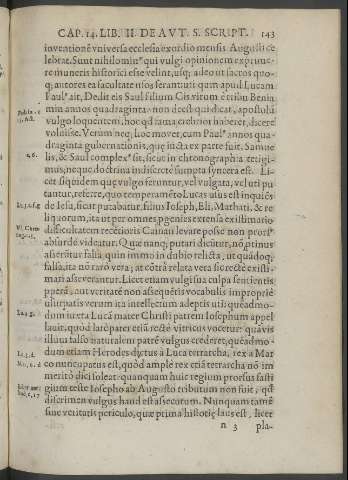 CAP. 14. LIB. II. DE AVT. S. SCRIPT. 143
inventione vniversa ecclesia exordio mensis Augusti ce
lebrat. Sunt nihilomin⁹ qui vulgi opinionem exprime-
re muneris historici esse velint, usq; adeo ut sacros quo-
q; autores ea facultate usos
Paul⁹ ait, Dedit eis Saul filium Cis virum è tribu Benia
min annos quadraginta: non de
vulgo loquentem, hoc qd fama crebrior haberet, dicere
voluisse. Verum neq; hoc mover, cum Paul⁹ annos qua-
draginta gubernationis, quæ iucta ex parte fuit. Samue
lis, & Saul complex⁹ sit, sicut in chronographia tetigi-
mus, neque doctrina indiscretè sumpta syncera est. Li-
cet siquidem quæ vulgo feruntur, vel vulgata, vel uti pu-
tantur, referre, quo temperamēto Lucas usus est inquiēs
de Iesu, sicut putabatur filius Ioseph, Eli, Mathati, & re
liquorum, ita ut per omnes
difficultatem recētioris Cauani levare posse non pror⁹
absurdè videatur. Quæ nanq; putari dicūtur, nō ,ptinus
asserūtur falsa, quin immo in dubio relicta, ut quādoq;
falsa, ita nō rarò vera; at cōtrà relata vera sic rectè existi-
mari asseverantur. Licet etiam vulgi sua culpa sentientis
pace, aut veritate non assequētis vocabulis impropriè
usurpatis verum ita intellectum adeptis uti: quēadmo-
dum iuxta Lucā mater Christi patrem Iosephum appel
lauit, quòd laropater etiā rectè vitricus vocetur: quāvis
illum falsò naturalem patrē vulgus crederet, quēadmo-
dum etiam Herodes dictus à Luca tetrarcha, rex a Mar
co nuncupatus est, quòd ample rex etiā tetrarcha nō im
meritò dici soleat: quanquam huic regium prorsus fasti
gium teste Iosepho ab Augusto tributum non fuit, qđ
discrimen vulgus haud est assecutum. Nunquam tamē
sine veritatis periculo, quæ prima historiç laus est, licet
n 3 pla-